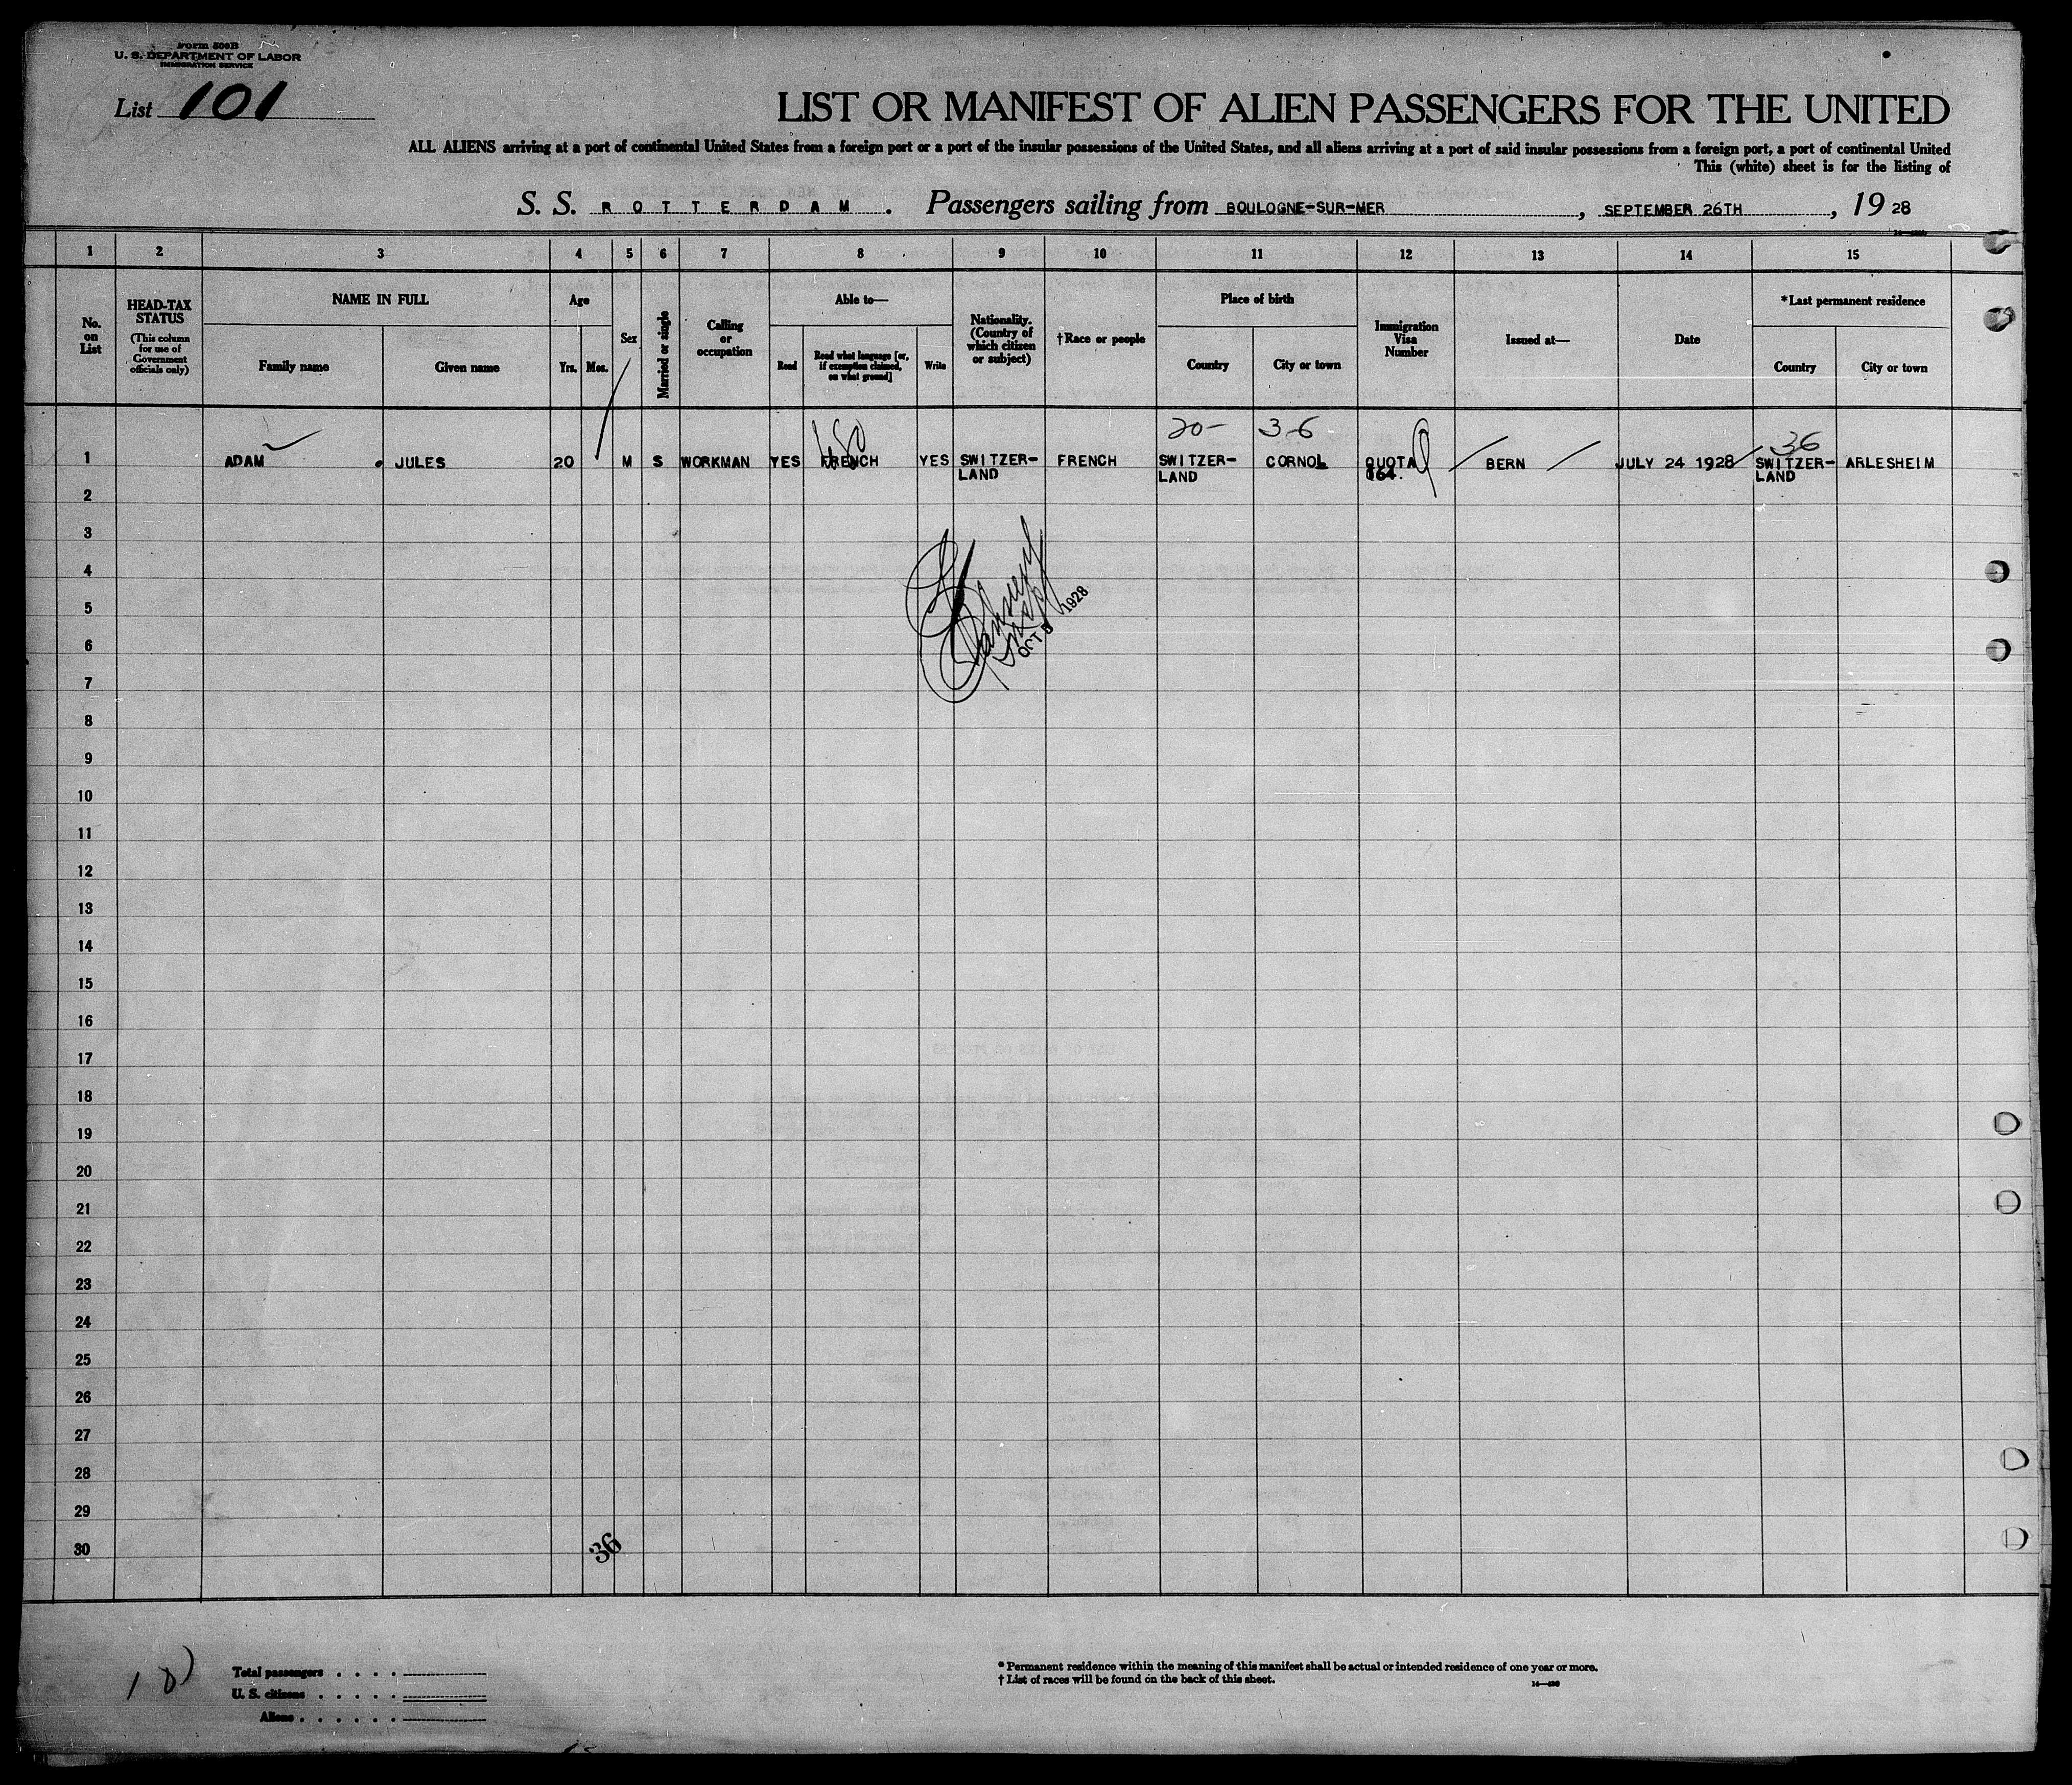 Form 500B
U. S. DEPARTMENT OF LABOR
IMMIGRATION SERVICE
List 101
LIST OR MANIFEST OF ALIEN PASSENGERS FOR THE UNITED
ALL ALIENS arriving at a port of continental United States from a foreign port or a port of the insular possessions of the United States, and all aliens arriving at a port of said insular possessions from a foreign port, a port of continental United
This (white) sheet is for the listing of
S. S. ROTTERDAM. Passengers sailing from BOULOGNE-SUR-MER, SEPTEMBER 26TH, 19 28
1 2 3 4 5 6 7 8 9 10 11 12 13 14 15
No. on List
HEAD-TAX STATUS
(This column for use of Government officials only)
NAME IN FULL
Family name
Given name
Age
Yrs. Mos.
Sex
Married or single
Calling or occupation
Able to—
Read
Read what language [or, if exemption claimed, on what ground]
Write
Nationality. (Country of which citizen or subject)
†Race or people
Place of birth
Country
City or town
Immigration Visa Number
Issued at—
Date
*Last permanent residence
Country
City or town
20- 36 36
1 ADAM JULES 20 M S WORKMAN YES FRENCH YES SWITZER- FRENCH SWITZER- CORNOL QUOTA BERN JULY 24 1928 SWITZER- ARLESHEIM
LAND LAND 164. LAND
2
3
4
5
OCT 5 1928
6
7
8
9
10
11
12
13
14
15
16
17
18
19
20
21
22
23
24
25
26
27
28
29
30
36
Total passengers
U. S. citizens
Aliens
* Permanent residence within the meaning of this manifest shall be actual or intended residence of one year or more.
† List of races will be found on the back of this sheet.